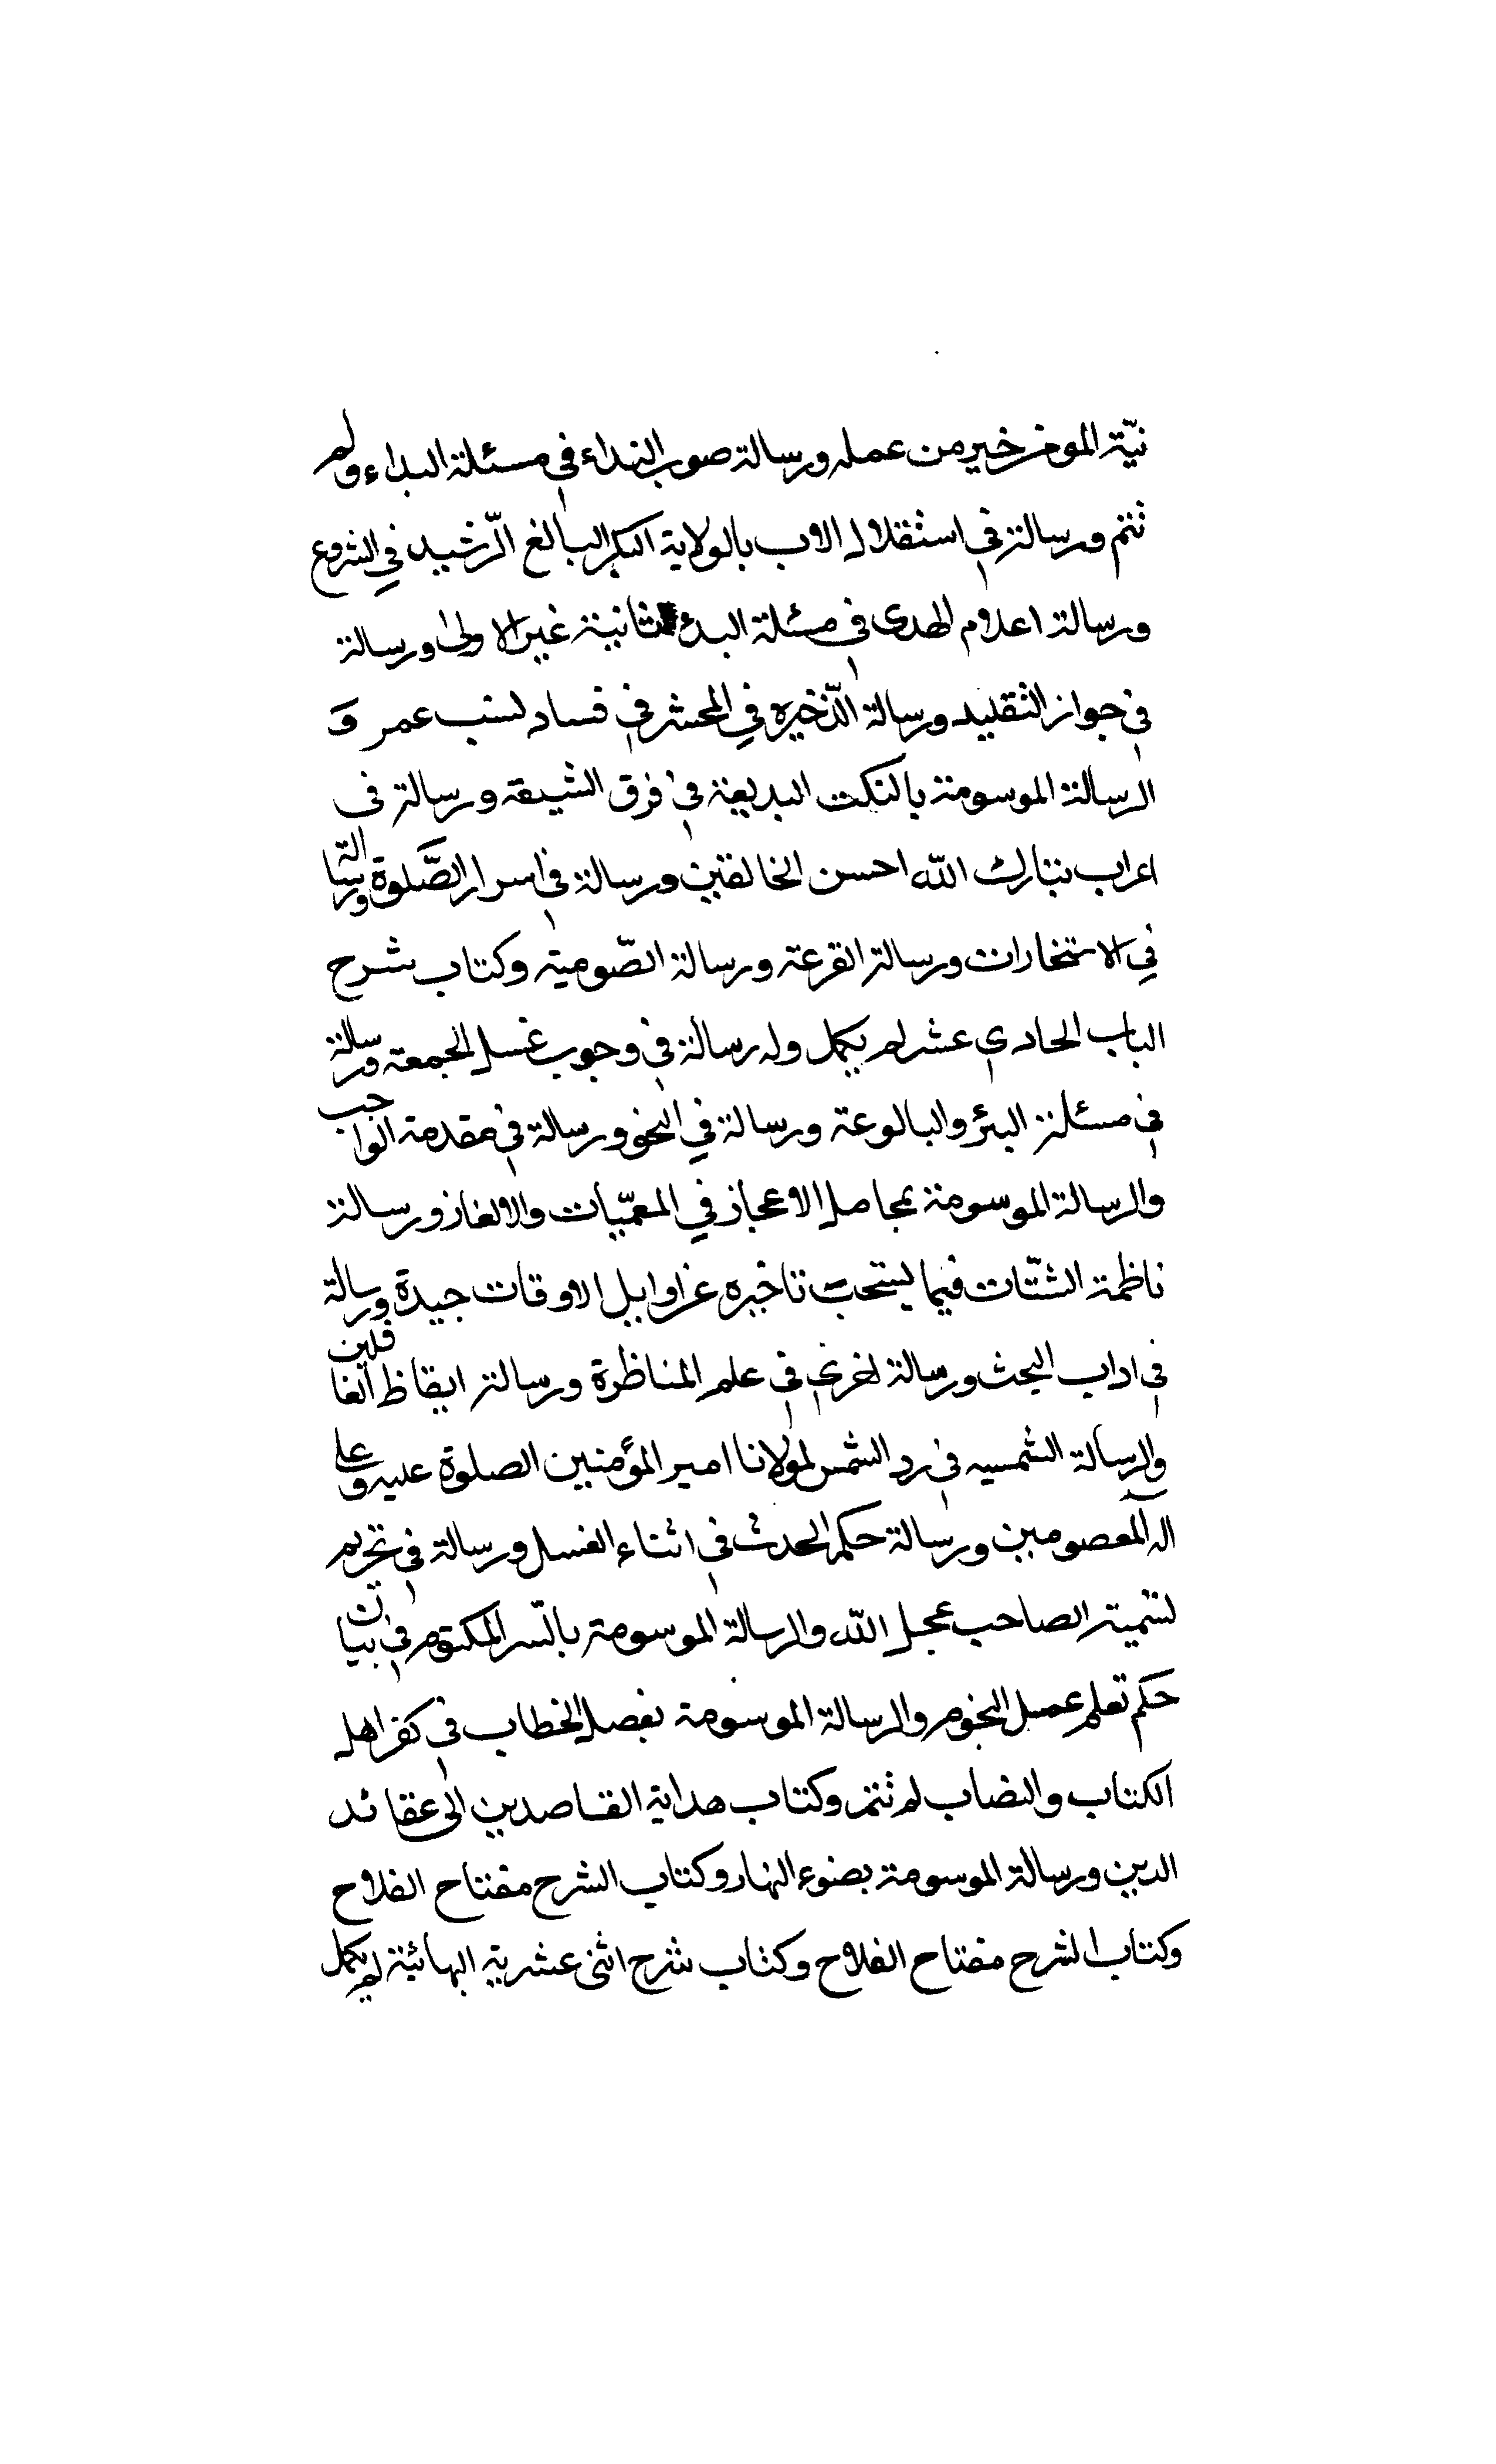 نيّة المومن خير من عمله ورسالة صوب النداء في مسئلة البداء ولم
تتم ورسالة في استقلال الاب بالولاية البكر البالغ الرّشيد في الشروع
ورسالة اعلام الهدى في مسئلة البدء ثانية غير الاولى ورسالة
في جواز التقليد ورسالة الذّخيره في المحشر في فساد نسب عمر وَ
الرسالة الموسومة بالنكت البديعة في فرق الشيعة ورسالة في
اعراب تبارك الله احسن الخالقين ورسالة في اسرار الصَّلوة ورسالة
في الاستخارات ورسالة القرعة ورسالة الصّومية وكتاب شرح
الباب الحادي عشر لم يكمل وله رسالة في وجوب غسل الجمعة ورسالة
في مسئلة البئر والبالوعة ورسالة في النحو ورسالة في مقدمة الواجب
والرسالة الموسومة بمحاصل الاعجاز في المعمّيات والالغاز ورسالة
ناظمة الشتّات فيما يستحب تاخيره عن اوايل الاوقات جيدة ورسالة
في اداب البحث ورسالة اخرى في علم المناظرة ورسالة ايقاظ الغافلين
والرسالة الشمسيه في رد الشمس لمولانا امير المؤمنين الصلوة عليه وعلى
اله المعصومين ورسالة حكم الحدث في اثناء الغسل ورسالة في تحريم
تسمية الصاحب عجل الله والرسالة الموسومة بالسّر المكتوم في بيان
حكم تعلم عمل النجوم والرسالة الموسومة بفصل الخطاب في كفر اهل
الكتاب والنصاب لم تتم وكتاب هداية القاصدين الى عقائد
الدين ورسالة الموسومة بضوء النهار وكتاب الشرح مفتاح الفلاح
وكتاب الشرح مفتاح الفلاح وكتاب شرح اثنى عشرية البهائية لم يكمل